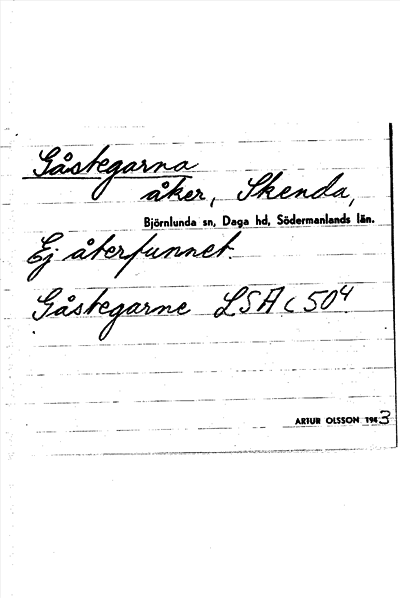 Gåstegarna
åker, Skenda,
Björnlunda sn, Daga hd, Södermanlands län.
Ej återfunnet.
Gåstegarne LSA C 50⁴
ARTUR OLSSON 1943